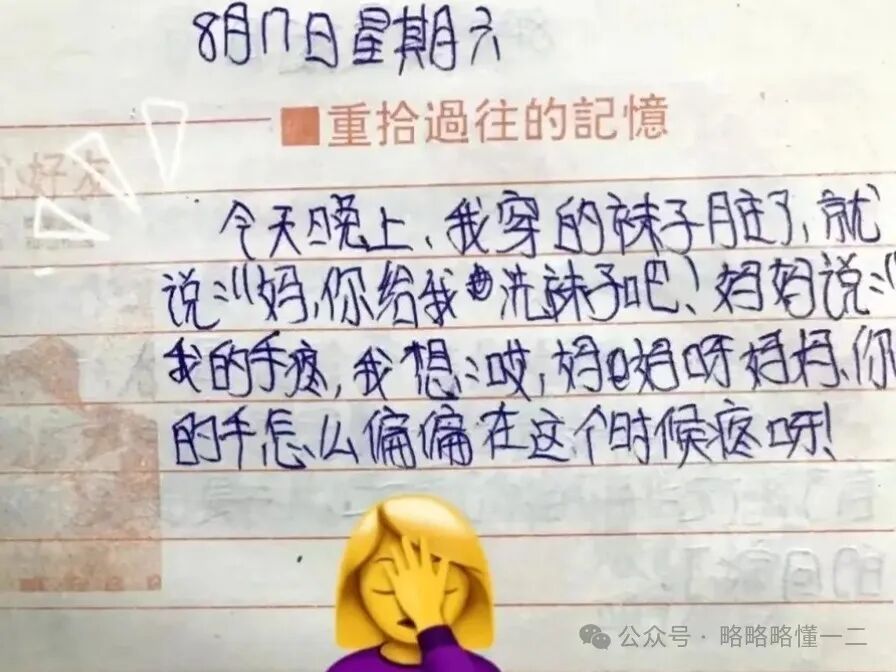 8月17日星期六
■重拾過往的記憶
好友
今天晚上、我穿的袜子脏了、就
说:"妈,你给我洗袜子吧!妈妈说:"
我的手疼,我想:哎,妈妈呀妈妈、你
的手怎么偏偏在这个时候疼呀!
公众号·略略略懂一二